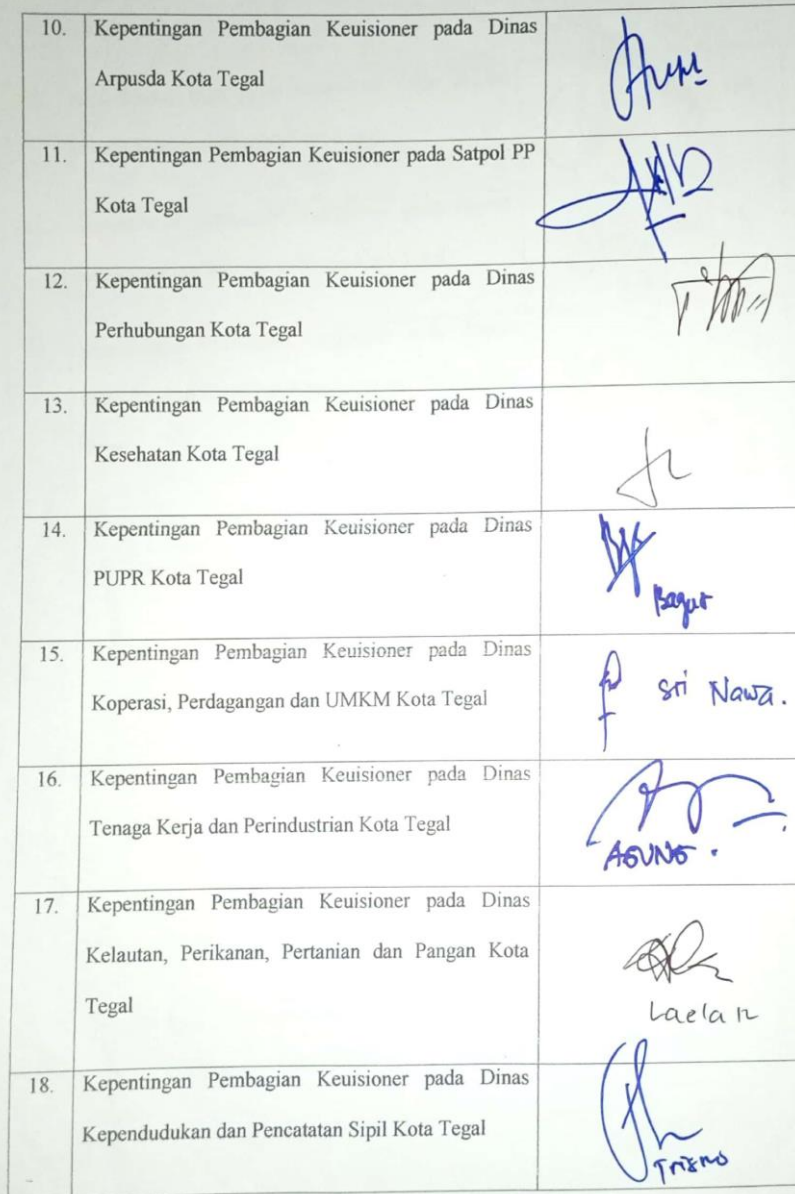 10. Kepentingan Pembagian Keuisioner pada Dinas
Arpusda Kota Tegal
11. Kepentingan Pembagian Keuisioner pada Satpol PP
Kota Tegal
12. Kepentingan Pembagian Keuisioner pada Dinas
Perhubungan Kota Tegal
13. Kepentingan Pembagian Keuisioner pada Dinas
Kesehatan Kota Tegal
14. Kepentingan Pembagian Keuisioner pada Dinas
PUPR Kota Tegal
Bagus
15. Kepentingan Pembagian Keuisioner pada Dinas
Koperasi, Perdagangan dan UMKM Kota Tegal
Sri Nawa.
16. Kepentingan Pembagian Keuisioner pada Dinas
Tenaga Kerja dan Perindustrian Kota Tegal
AGUNG.
17. Kepentingan Pembagian Keuisioner pada Dinas
Kelautan, Perikanan, Pertanian dan Pangan Kota
Tegal
Laela
18. Kepentingan Pembagian Keuisioner pada Dinas
Kependudukan dan Pencatatan Sipil Kota Tegal
Trisno